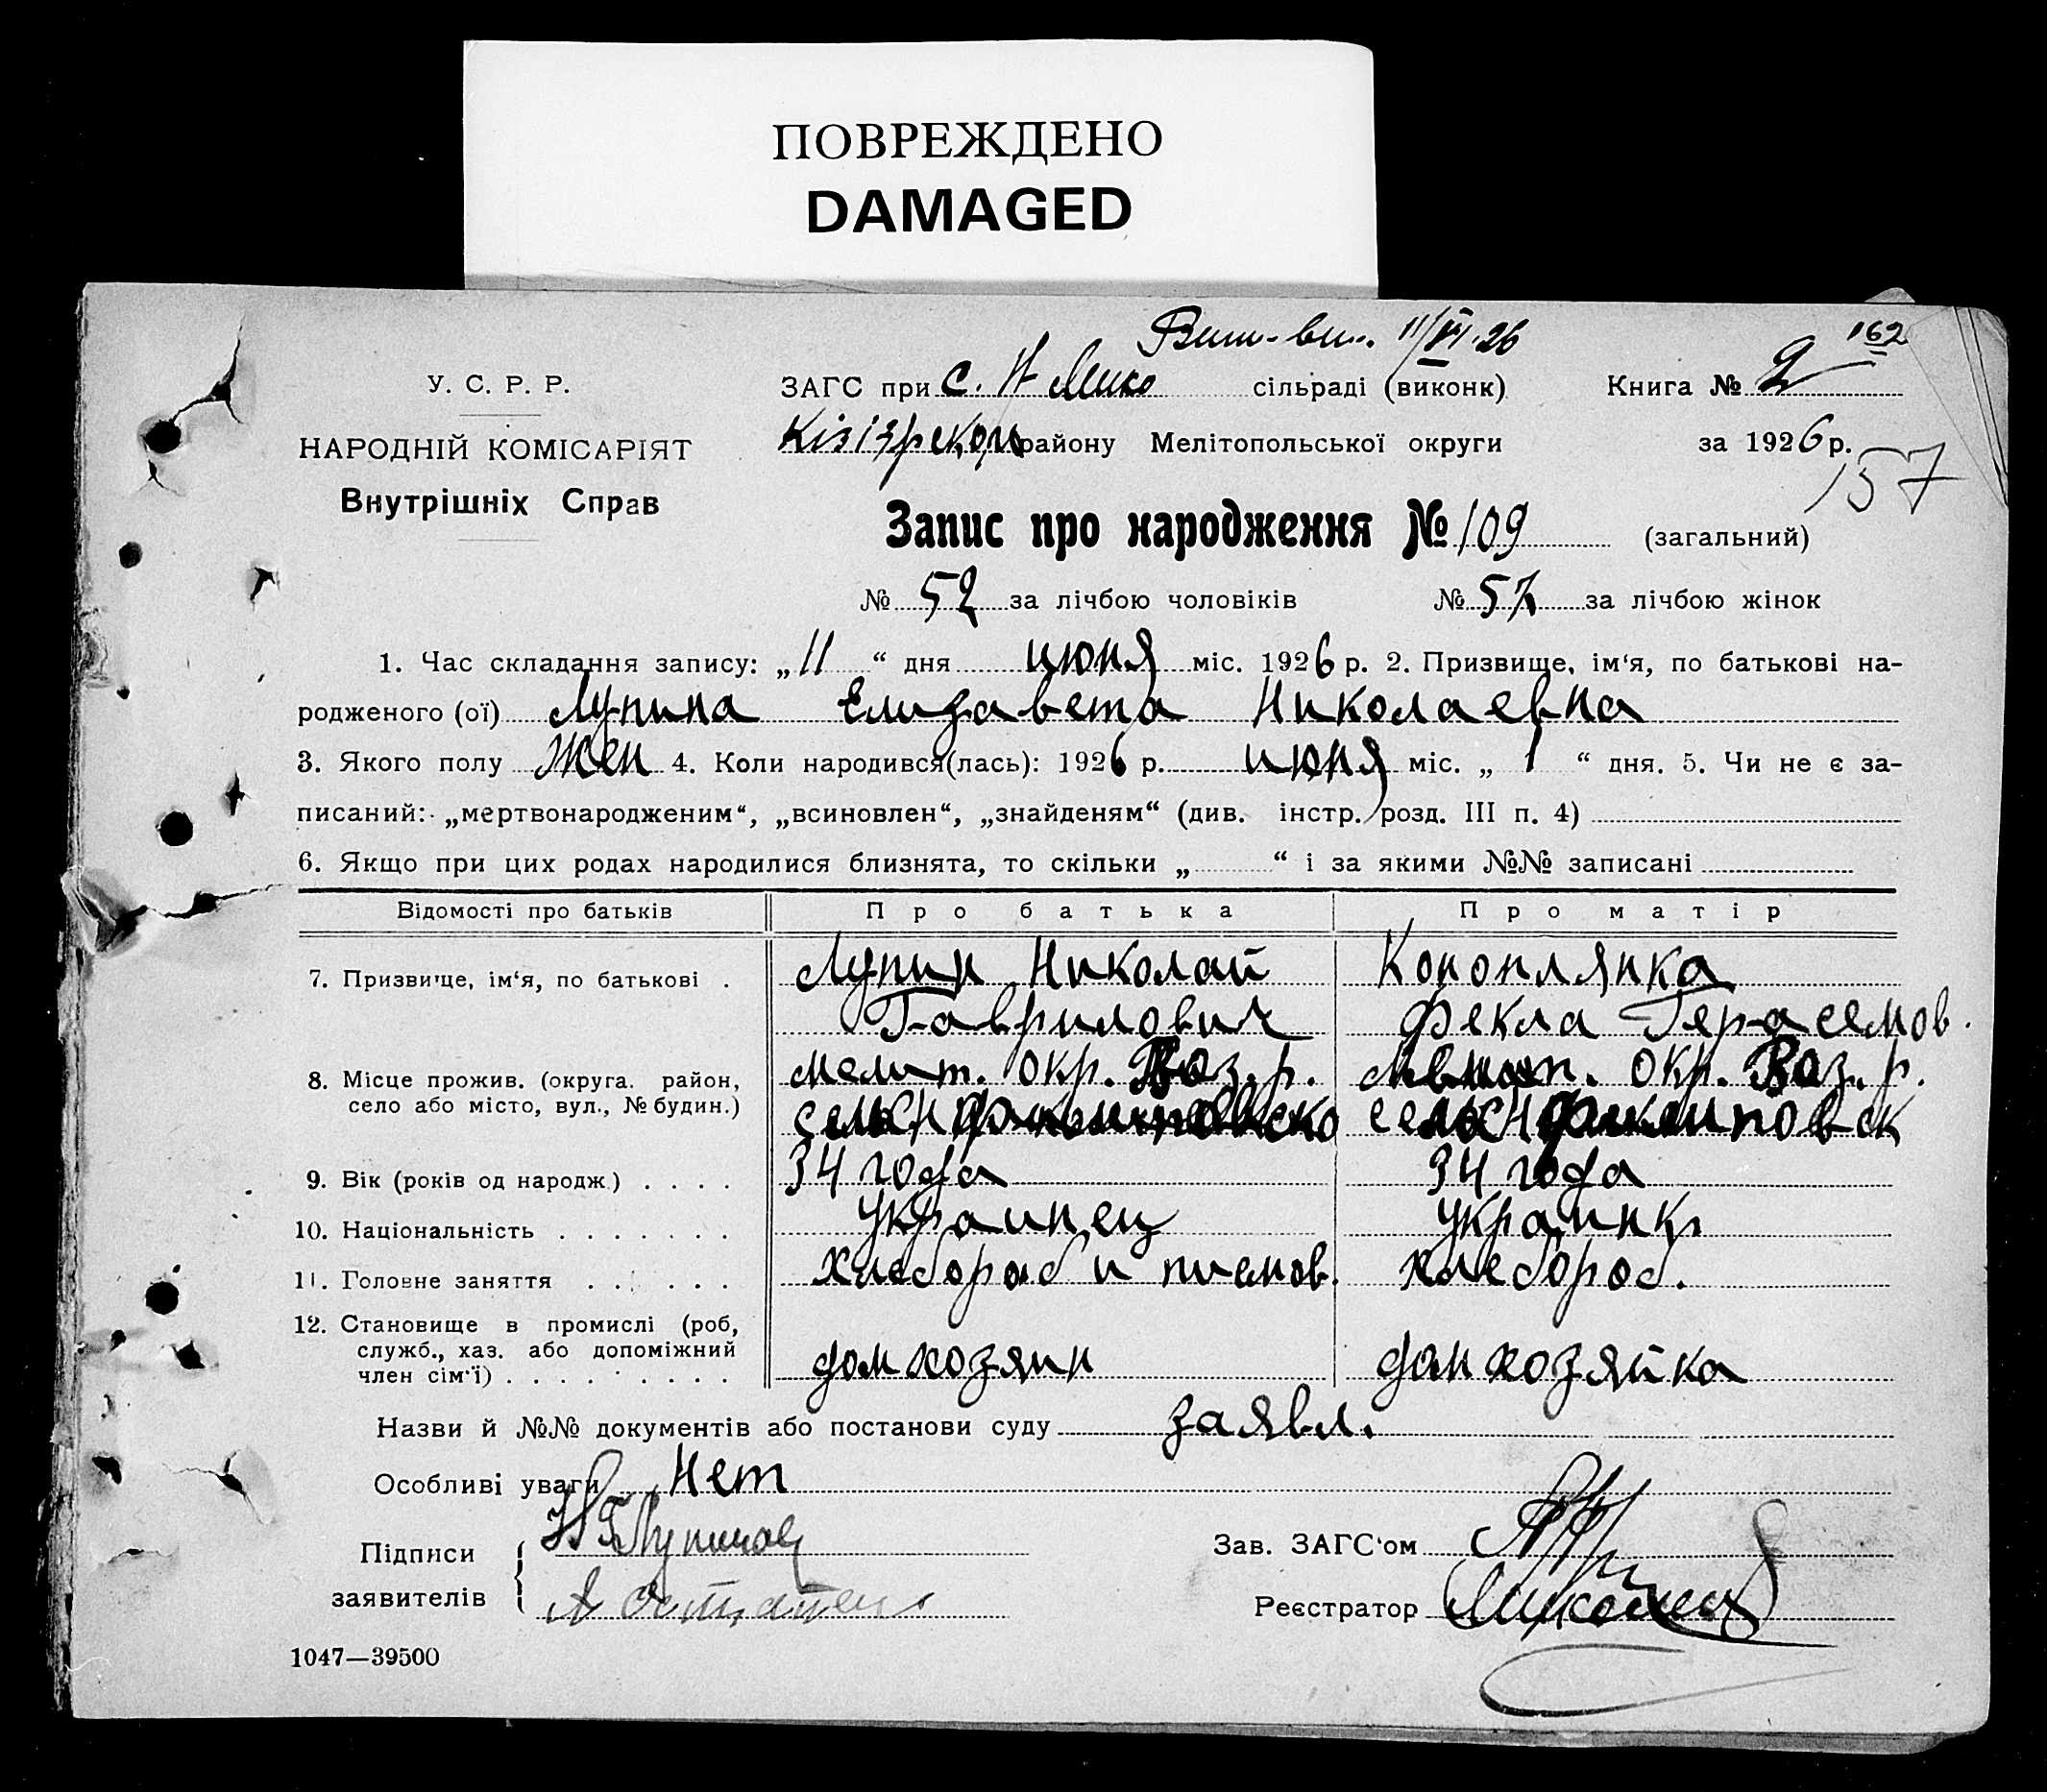 ПОВРЕЖДЕНО
DAMAGED
11/VI.26
162
У. С. Р. Р.
ЗАГС при с. Н сільраді (виконк) Книга № 2
НАРОДНІЙ КОМІСАРІЯТ
району Мелітопольської округи за 1926 р.
157
Внутрішніх Справ
Запис про народження № 109 (загальний)
№ 52 за лічбою чоловіків № 57 за лічбою жінок
1. Час складання запису: „ 11 “ дня июня міс. 1926 р. 2. Призвище, ім‘я, по батькові на-
родженого (ої) Лупина Елизавета Николаевна
3. Якого полу жен 4. Коли народився(лась): 1926 р. июня міс. „ 1 “ дня. 5. Чи не є за-
писаний: „мертвонародженим“, „всиновлен“, „знайденям“ (див. інстр. розд. III п. 4)
6. Якщо при цих родах народилися близнята, то скільки „ “ і за якими №№ записані
Відомості про батьків Про батька Про матір
7. Призвище, ім‘я, по батькові . Лупин Николай Коноплянка
Гаврилович Фекла Герасемов.
8. Місце прожив. (округа. район, мелит. окр. Ваз. р. окр. Ваз. р.
село або місто, вул., № будин.)
9. Вік (років од народж.) . . . . 34 года 34 года
10. Національність . . . . . . . украинец украинк
11. Головне заняття . . . . . . хлебороб и хлебороб.
12. Становище в промислі (роб,
служб., хаз. або допоміжний домхозяин домхозяйка
член сім‘ї) . . . . . . . . .
Назви й №№ документів або постанови суду заявл.
Особливі уваги Нет
Підписи Зав. ЗАГС‘ом
заявителів Реєстратор
1047—39500